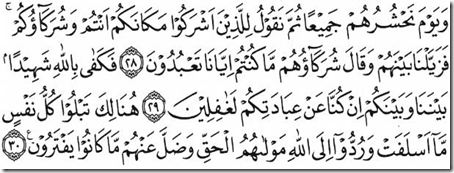 وَيَوْمَ نَحْشُرُهُمْ جَمِيعًا ثُمَّ نَقُولُ لِلَّذِينَ أَشْرَكُوا مَكَانَكُمْ أَنْتُمْ وَشُرَكَاؤُكُمْ ۚ
فَزَيَّلْنَا بَيْنَهُمْ وَقَالَ شُرَكَاؤُهُمْ مَا كُنْتُمْ إِيَّانَا تَعْبُدُونَ ﴿٢٨﴾ فَكَفَى بِاللَّهِ شَهِيدًا
بَيْنَنَا وَبَيْنَكُمْ إِنْ كُنَّا عَنْ عِبَادَتِكُمْ لَغَافِلِينَ ﴿٢٩﴾ هُنَالِكَ تَبْلُوا كُلُّ نَفْسٍ
مَا أَسْلَفَتْ وَرُدُّوا إِلَى اللَّهِ مَوْلٰىهُمُ الْحَقِّ وَضَلَّ عَنْهُمْ مَا كَانُوا يَفْتَرُونَ ﴿٣٠﴾